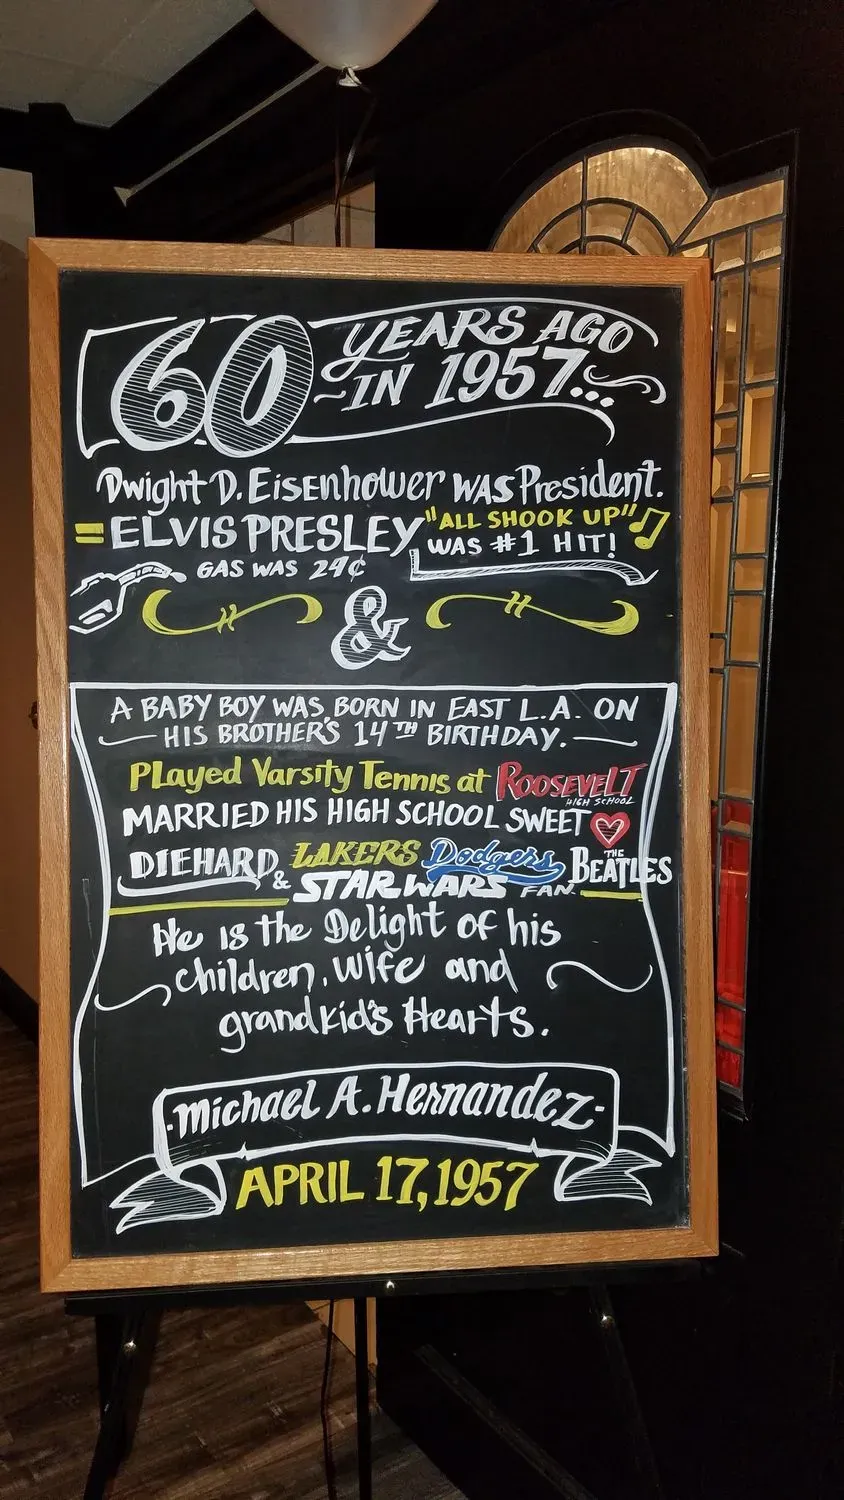 60 YEARS AGO
~IN 1957...
Dwight D. Eisenhower was President.
=ELVIS PRESLEY "ALL SHOOK UP"
WAS #1 HIT!
GAS WAS 24¢
&
A BABY BOY WAS BORN IN EAST L.A. ON
HIS BROTHER'S 14TH BIRTHDAY.
Played Varsity Tennis at ROOSEVELT
HIGH SCHOOL
MARRIED HIS HIGH SCHOOL SWEET
DIEHARD LAKERS Dodgers THE BEATLES
& STAR WARS FAN.
He is the Delight of his
children, wife and
grandkid's Hearts.
-Michael A. Hernandez-
APRIL 17, 1957